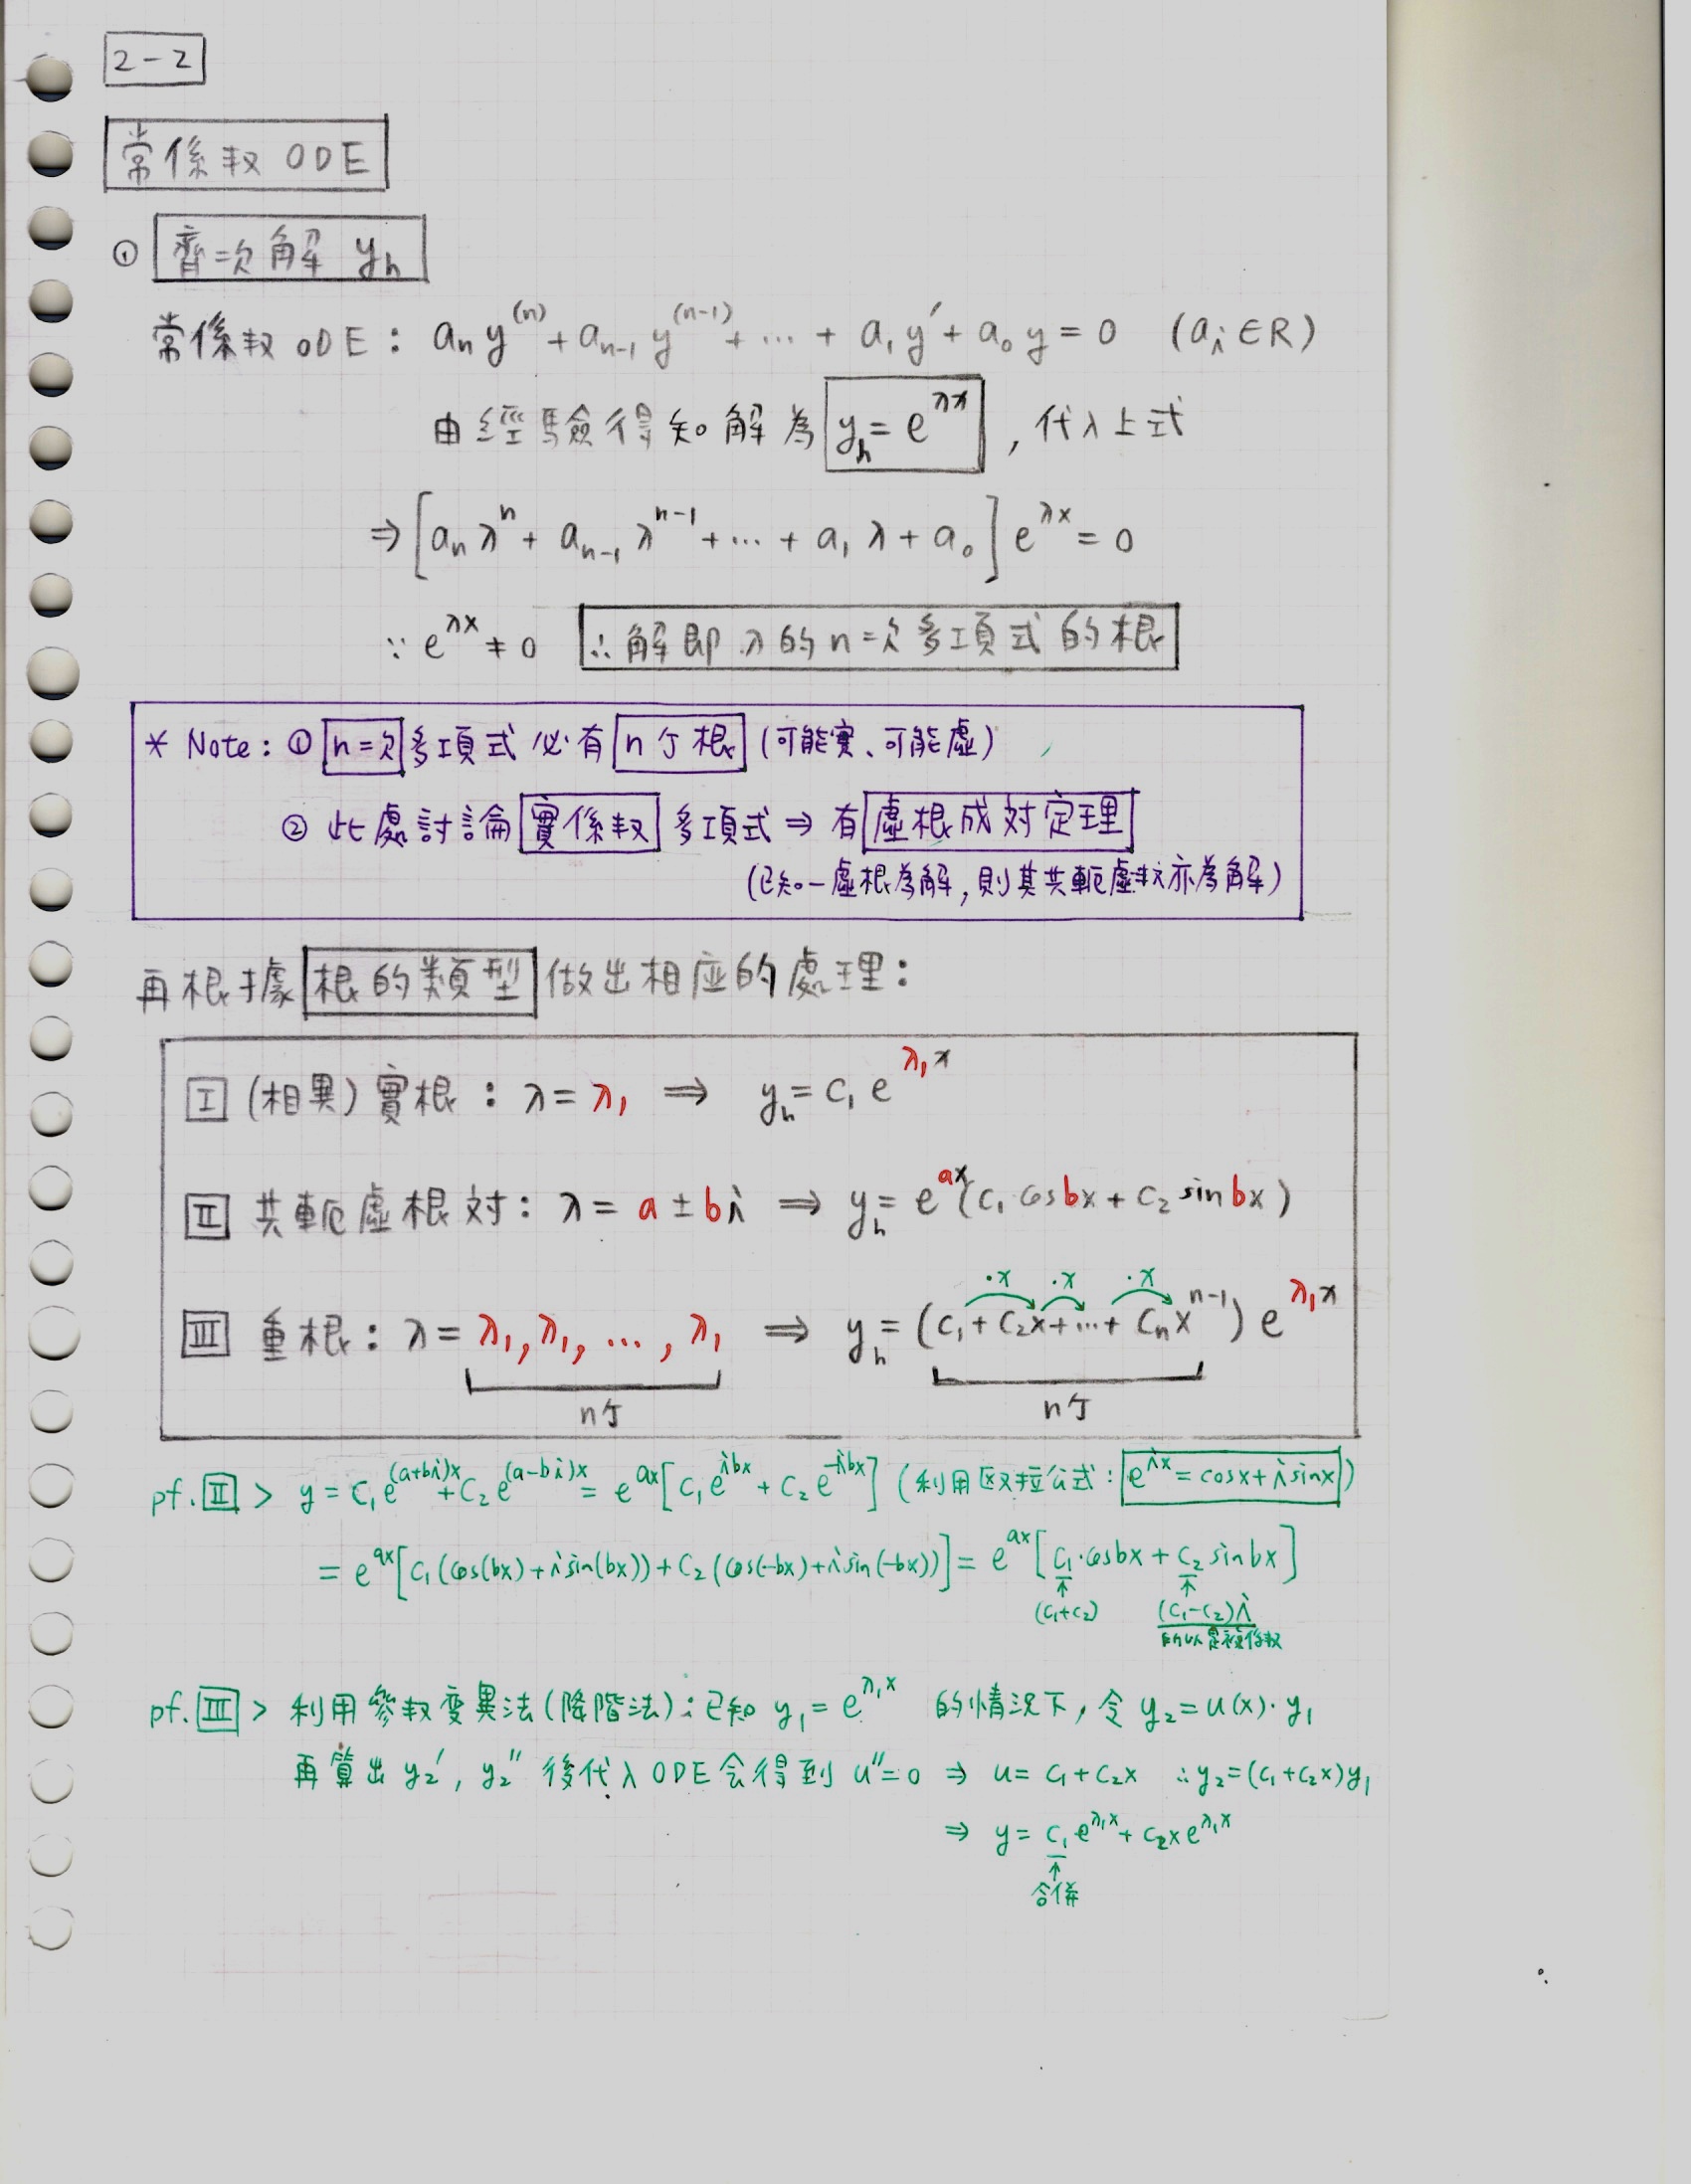 2-2
常係数 ODE
① 齊次解 yₕ
常係数 ODE : aₙy⁽ⁿ⁾ + aₙ₋₁y⁽ⁿ⁻¹⁾ + … + a₁y′ + a₀y = 0 (aᵢ∈R)
由經驗得知解為 yₕ = e^{λx} , 代入上式
⇒ [aₙλⁿ + aₙ₋₁λⁿ⁻¹ + … + a₁λ + a₀] e^{λx} = 0
∵ e^{λx} ≠ 0 ∴解即λ的n次多項式的根
* Note : ① n次多項式必有n个根 (可能實、可能虛)
② 此處討論實係数多項式 ⇒ 有虛根成対定理
(已知一虛根為解, 則其共軛虛数亦為解)
再根據根的類型做出相应的處理:
I (相異) 實根 : λ = λ₁ ⇒ yₕ = c₁e^{λ₁x}
II 共軛虛根対 : λ = a ± bi ⇒ yₕ = e^{ax}(c₁cosbx + c₂sinbx)
·x ·x ·x
III 重根 : λ = λ₁, λ₁, … , λ₁ ⇒ yₕ = (c₁ + c₂x + … + cₙxⁿ⁻¹) e^{λ₁x}
n个 n个
pf. II > y = c₁e^{(a+bi)x} + c₂e^{(a-bi)x} = e^{ax}[c₁e^{ibx} + c₂e^{-ibx}] (利用欧拉公式 : e^{ix} = cosx + isinx)
= e^{ax}[c₁(cos(bx) + isin(bx)) + c₂(cos(-bx) + isin(-bx))] = e^{ax}[c₁·cosbx + c₂sinbx]
↑ ↑
(c₁+c₂) (c₁-c₂)i
pf. III > 利用參数变異法(降階法) : 已知 y₁ = e^{λ₁x} 的情況下, 令 y₂ = u(x)·y₁
再算出 y₂′, y₂″ 後代入 ODE 会得到 u″=0 ⇒ u = c₁ + c₂x ∴ y₂ = (c₁ + c₂x)y₁
⇒ y = c₁e^{λ₁x} + c₂xe^{λ₁x}
↑
合併